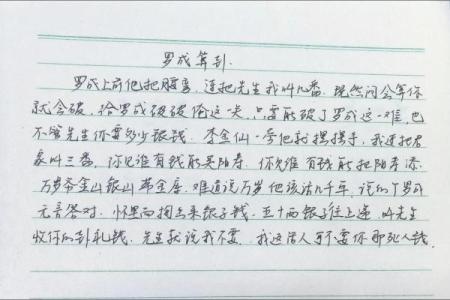 罗成算卦.
罗成上前他把腰弯，连把先生我叫几番. 既然问会算你
就会破，给罗成破破俺这一关，只要能破了罗成这一难，也
不管先生你要多少银钱. 李金仙一旁他就摆摆手，我连把君
家叫三番，你见谁有钱能买阳寿. 你见谁有钱能把阳寿添.
万岁爷金山银山带金库. 难道说万岁他该活几千年. 说的了罗成
无言答对. 怀里面掏出来银子钱. 五十两银子往上递 叫先生
收你的卦礼钱. 先生就说我不要. 我这活人可不要你那死人钱.